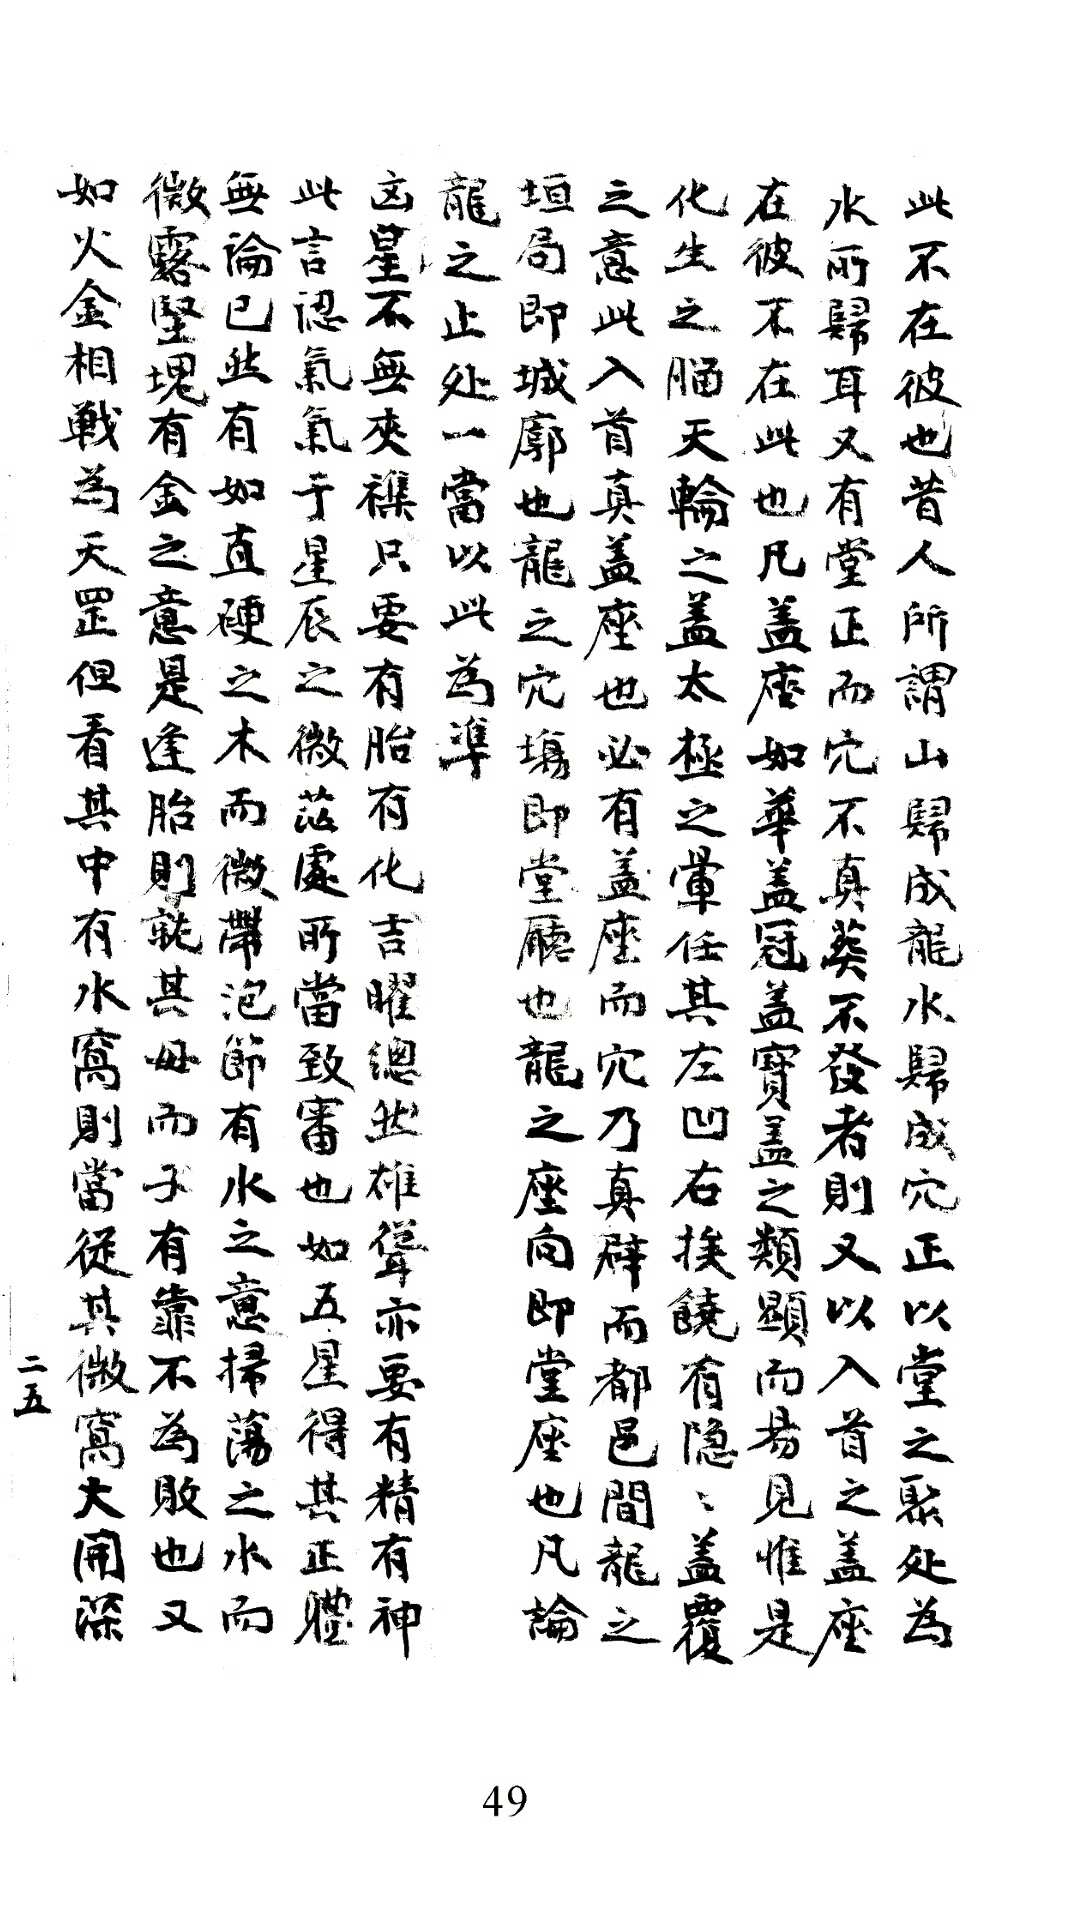 此不在彼也昔人所謂山歸成龍水歸成穴正以堂之聚处為
水所歸耳又有堂正而穴不真葵不發者則又以入首之盖座
在彼不在此也凡盖座如華盖冠盖寳盖之類顯而易見惟是
化生之腦天輪之盖太極之暈任其左凹右挨饒有隐〻盖覆
之意此入首真盖座也必有盖座而穴乃真辟而都邑間龍之
垣局即城廓也龍之穴塲即堂廳也龍之座向即堂座也凡論
龍之止处一當以此為準
凶星不無夾襍只要有胎有化吉曜總然雄聳亦要有精有神
此言認氣氣于星辰之微茫處所當致審也如五星得其正體
無論已然有如直硬之木而微帶泡節有水之意掃蕩之水而
微露堅塊有金之意是逢胎則就其母而子有靠不為敗也又
如火金相戰為天罡但看其中有水窩則當從其微窩大開深
二五
49